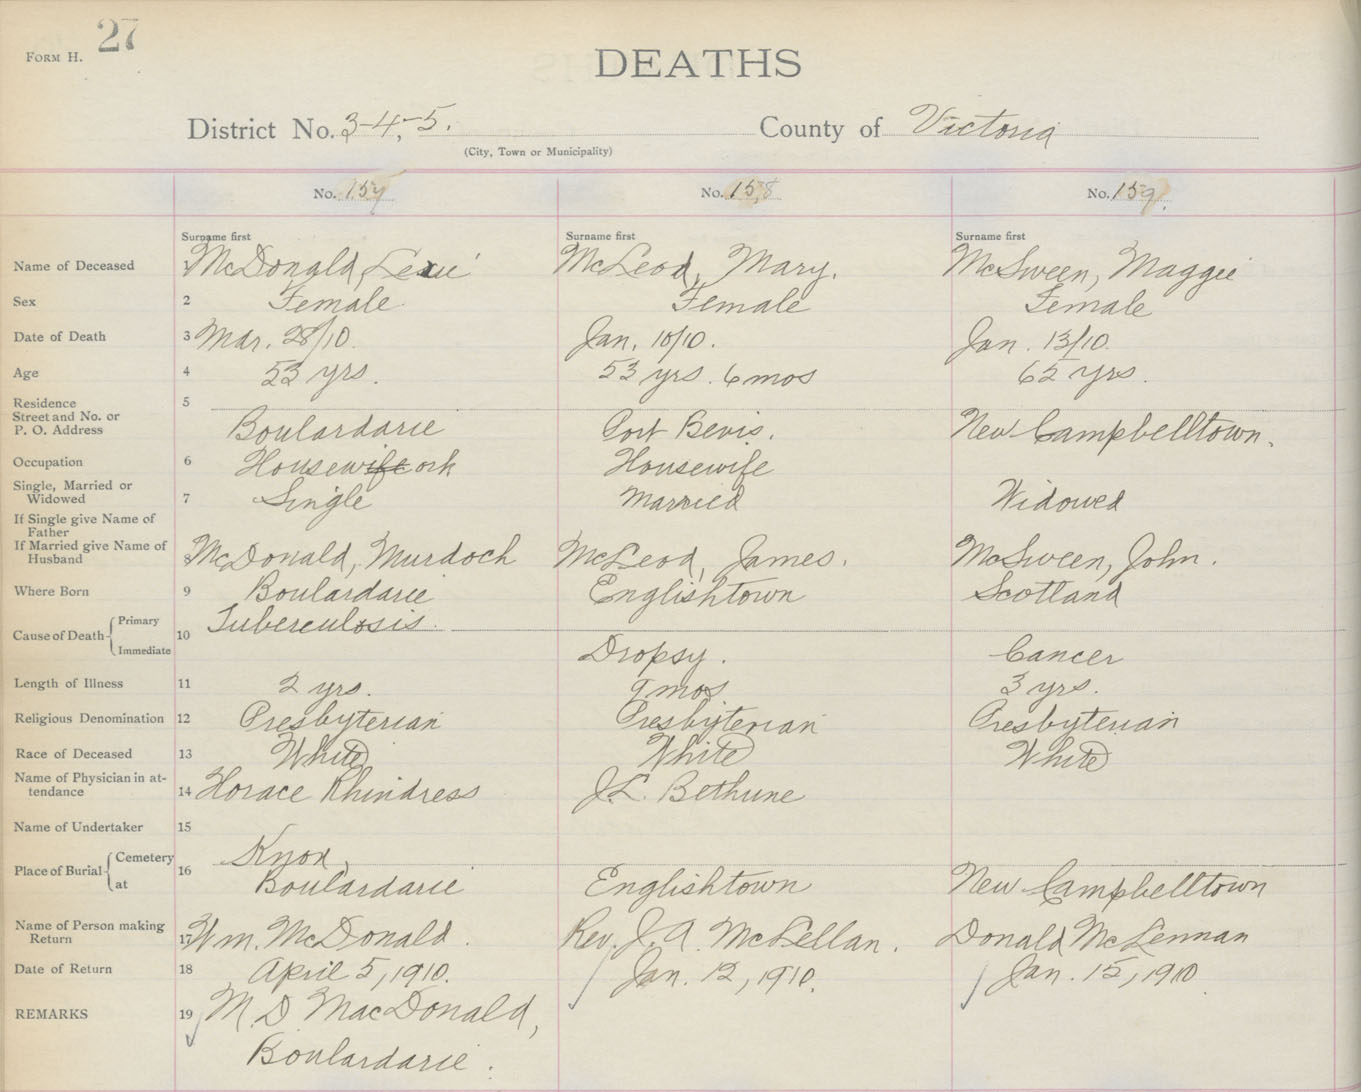 27
FORM H.
DEATHS
District No. 3-4,-5. County of Victoria
(City, Town or Municipality)
No. 157 No. 158 No. 159.
Surname first Surname first Surname first
Name of Deceased 1 McDonald, Lexie McLeod, Mary. McSween, Maggie
Sex 2 Female Female Female
Date of Death 3 Mar. 28/10. Jan. 10/10. Jan. 13/10.
Age 4 53 yrs. 53 yrs. 6 mos 65 yrs.
Residence 5
Street and No. or
P. O. Address Boulardarie Port Bevis. New Campbelltown.
Occupation 6 Housewifeork Housewife
Single, Married or
Widowed 7 Single Married Widowed
If Single give Name of
Father
If Married give Name of
Husband 8 McDonald, Murdoch McLeod, James. McSween, John.
Where Born 9 Boulardarie Englishtown Scotland
Cause of Death Primary 10 Tuberculosis.
Immediate Dropsy. Cancer
Length of Illness 11 2 yrs. 9 mos 3 yrs.
Religious Denomination 12 Presbyterian Presbyterian Presbyterian
Race of Deceased 13 White White White
Name of Physician in at-
tendance 14 Horace Rhindress J.L. Bethune
Name of Undertaker 15
Place of Burial Cemetery 16 Knox,
at Boulardarie Englishtown New Campbelltown
Name of Person making
Return 17 Wm. McDonald. Rev. J. A. McLellan. Donald McLennan
Date of Return 18 April 5, 1910. Jan. 12, 1910. Jan. 15, 1910
REMARKS 19 M. D. MacDonald,
Boulardarie.